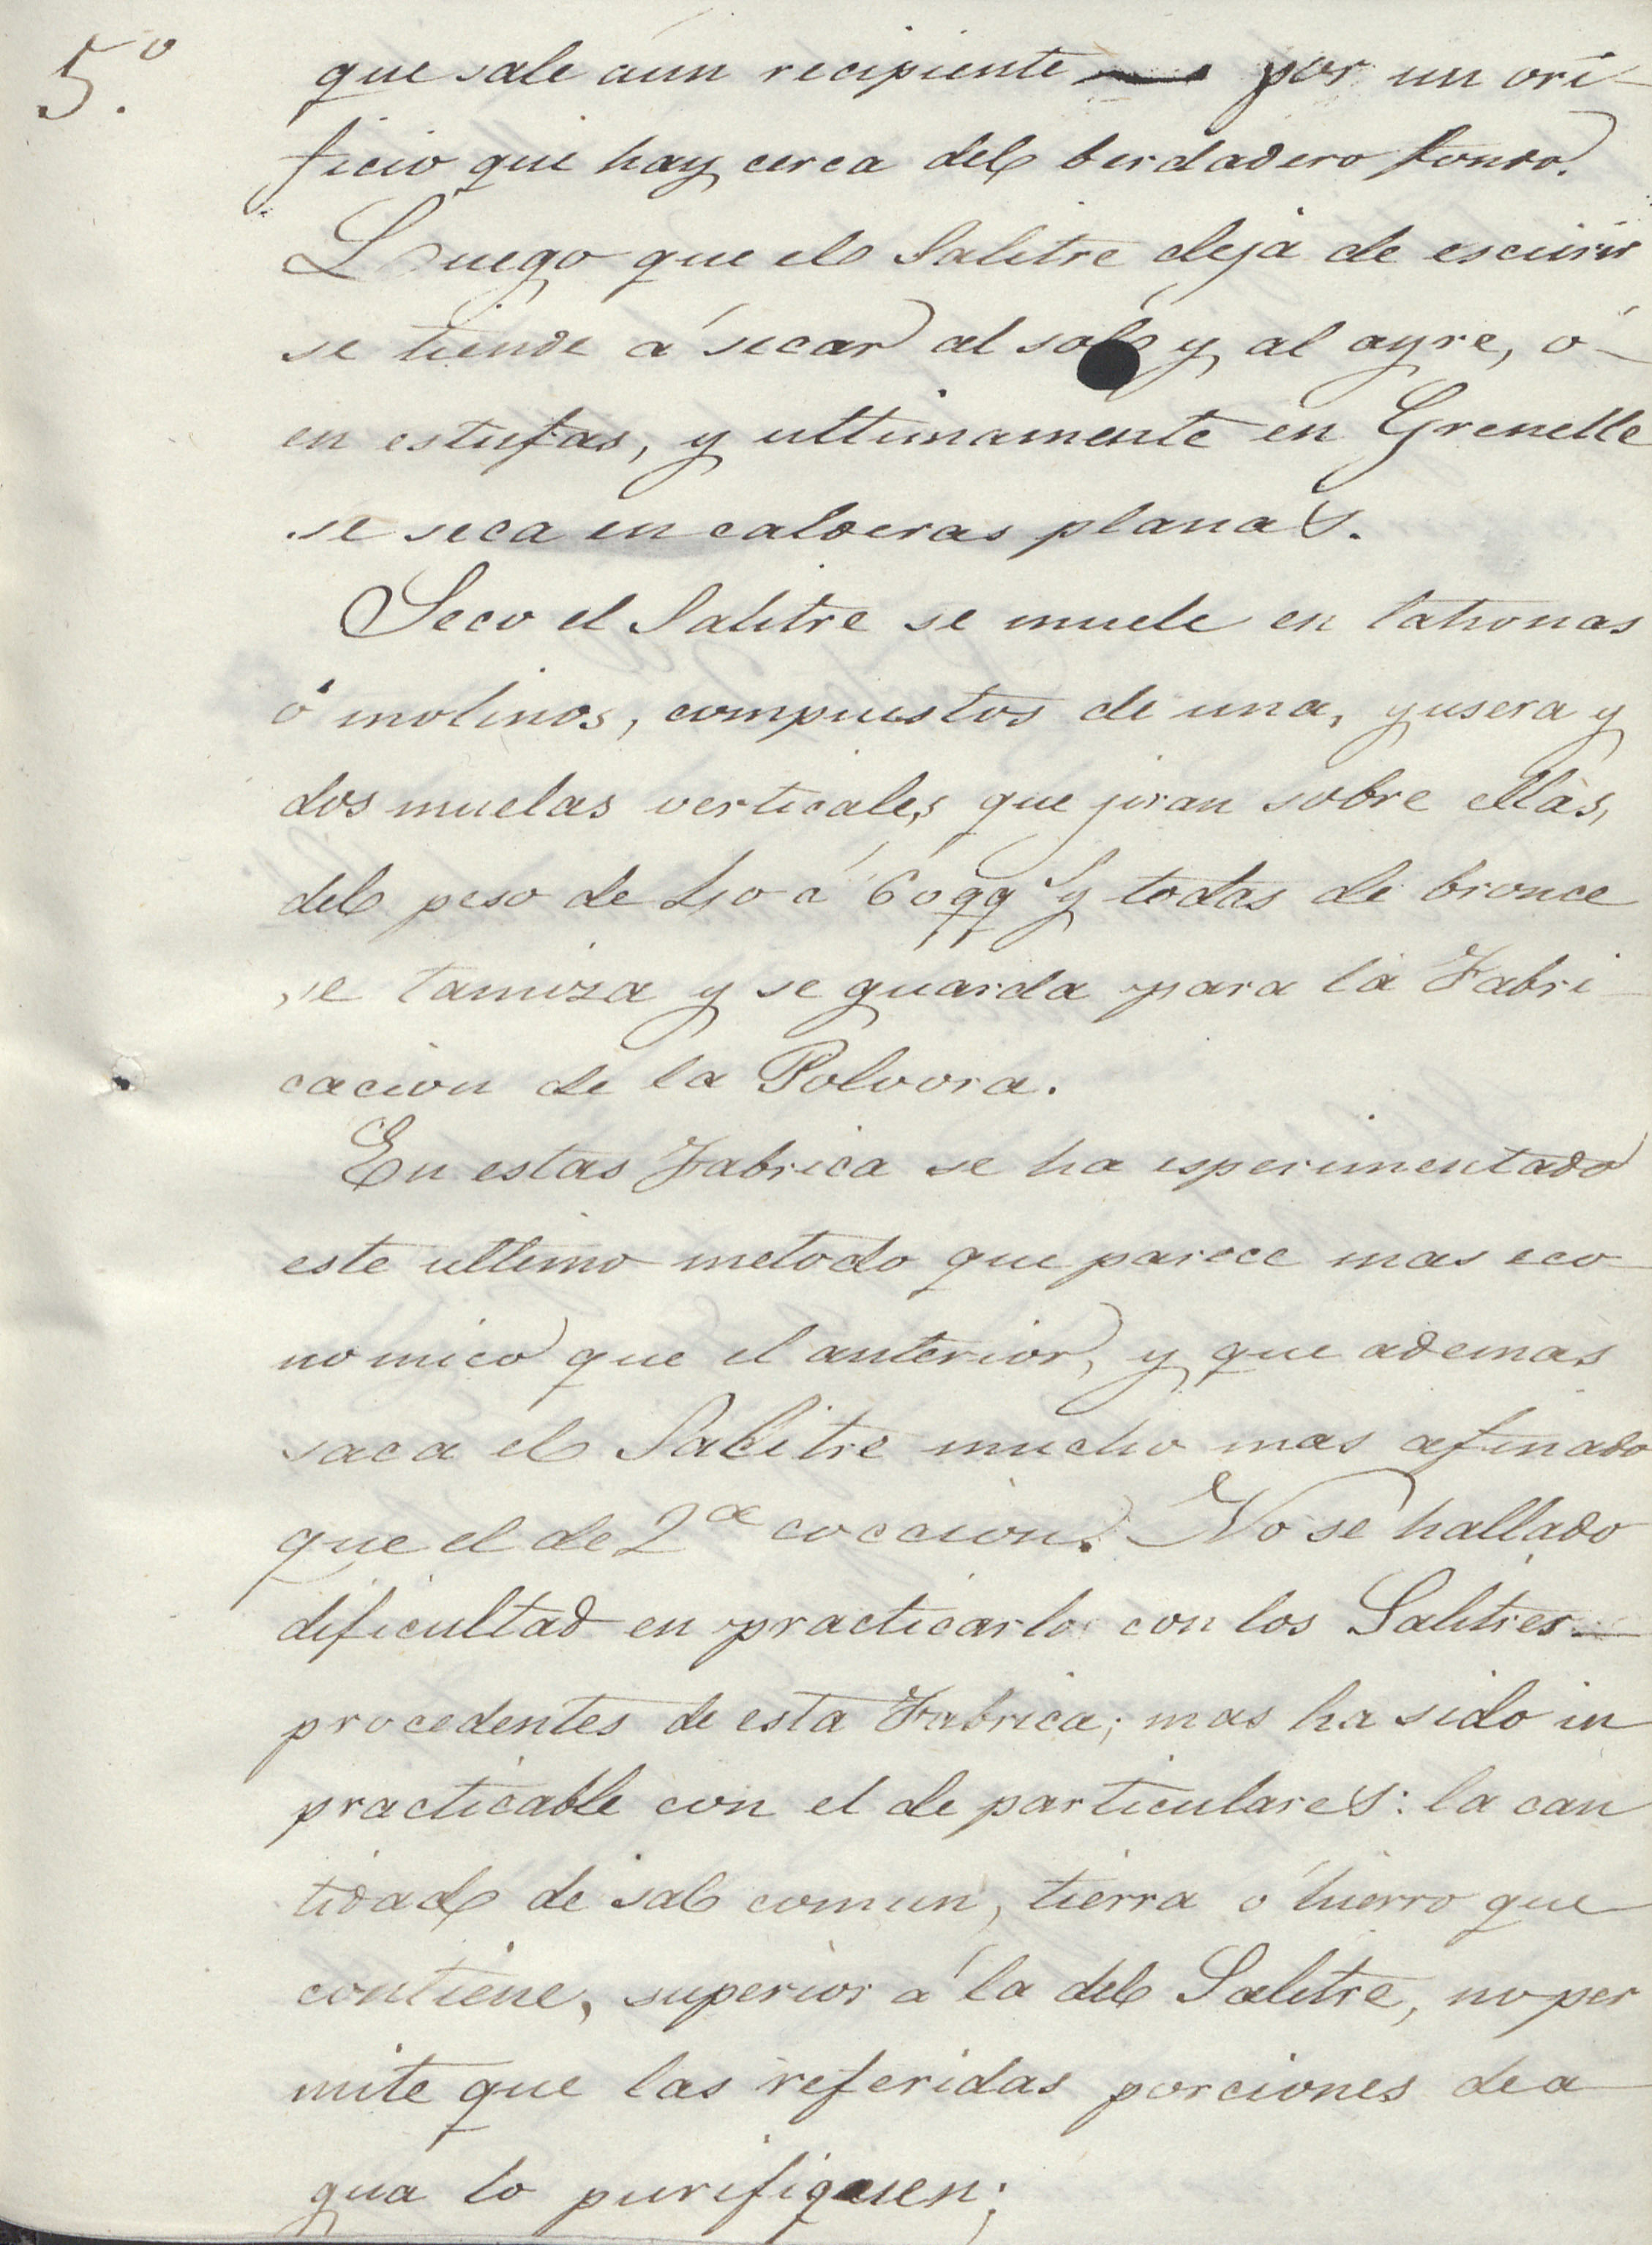 5.º
que sale aun recipiente por un ori-
ficio que hay cerca del berdadero fondo.
Luego que el Salitre deja de escurir
se tiende á secar al sol y al ayre, ó
en estufas, y ultimamente en Grenelle
se seca en calderas planas.
Seco el Salitre se muele en tahonas
ó molinos, compuestos de una, yusera y
dos muelas verticales que jiran sobre ellas,
del peso de 40 á 60 qq.s y todas de bronce
se tamiza y se guarda para la Fabri-
cacion de la Polvora.
En estas Fabrica se ha esperimentado
este ultimo metodo que parece mas eco-
nomico que el anterior, y que ademas
saca el Salitre mucho mas afinado
que el de 2.ª coccion. No se hallado
dificultad en practicarlo con los Salitres
procedentes de esta Fabrica; mas ha sido in
practicable con el de particulares: la can
tidad de sal comun, tierra ó hierro que
contiene, superior á la del Salitre, no per
mite que las referidas porciones de a
gua lo purifiquen;